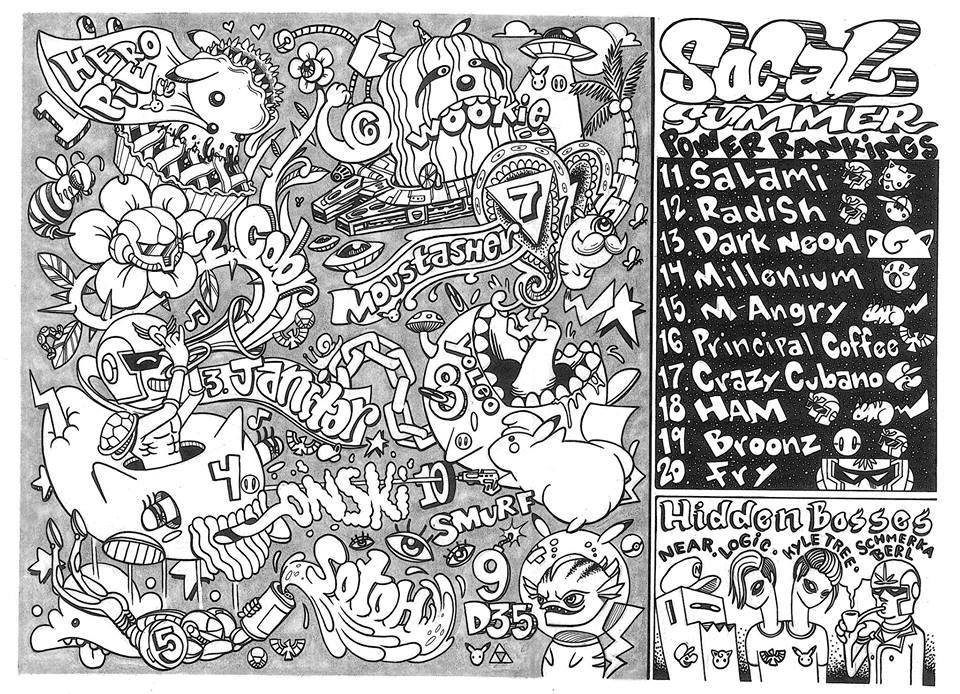 1 HERO
2. Cob
3. Jamjar
4
5
Sotoh
6
WOOKIE
7
Moustasher
8
9
D35
10
SMURF
SoCaL
SUMMER
POWER RANKINGS
11. Salami
12. Radish
13. Dark Neon
14 Millenium
15. M-Angry
16 Principal Coffee
17 Crazy Cubano
18 HAM
19 Broonz
20 Fry
Hidden Bosses
NEAR. LOGIC. KYLE TREE. SCHMERKA
BERL